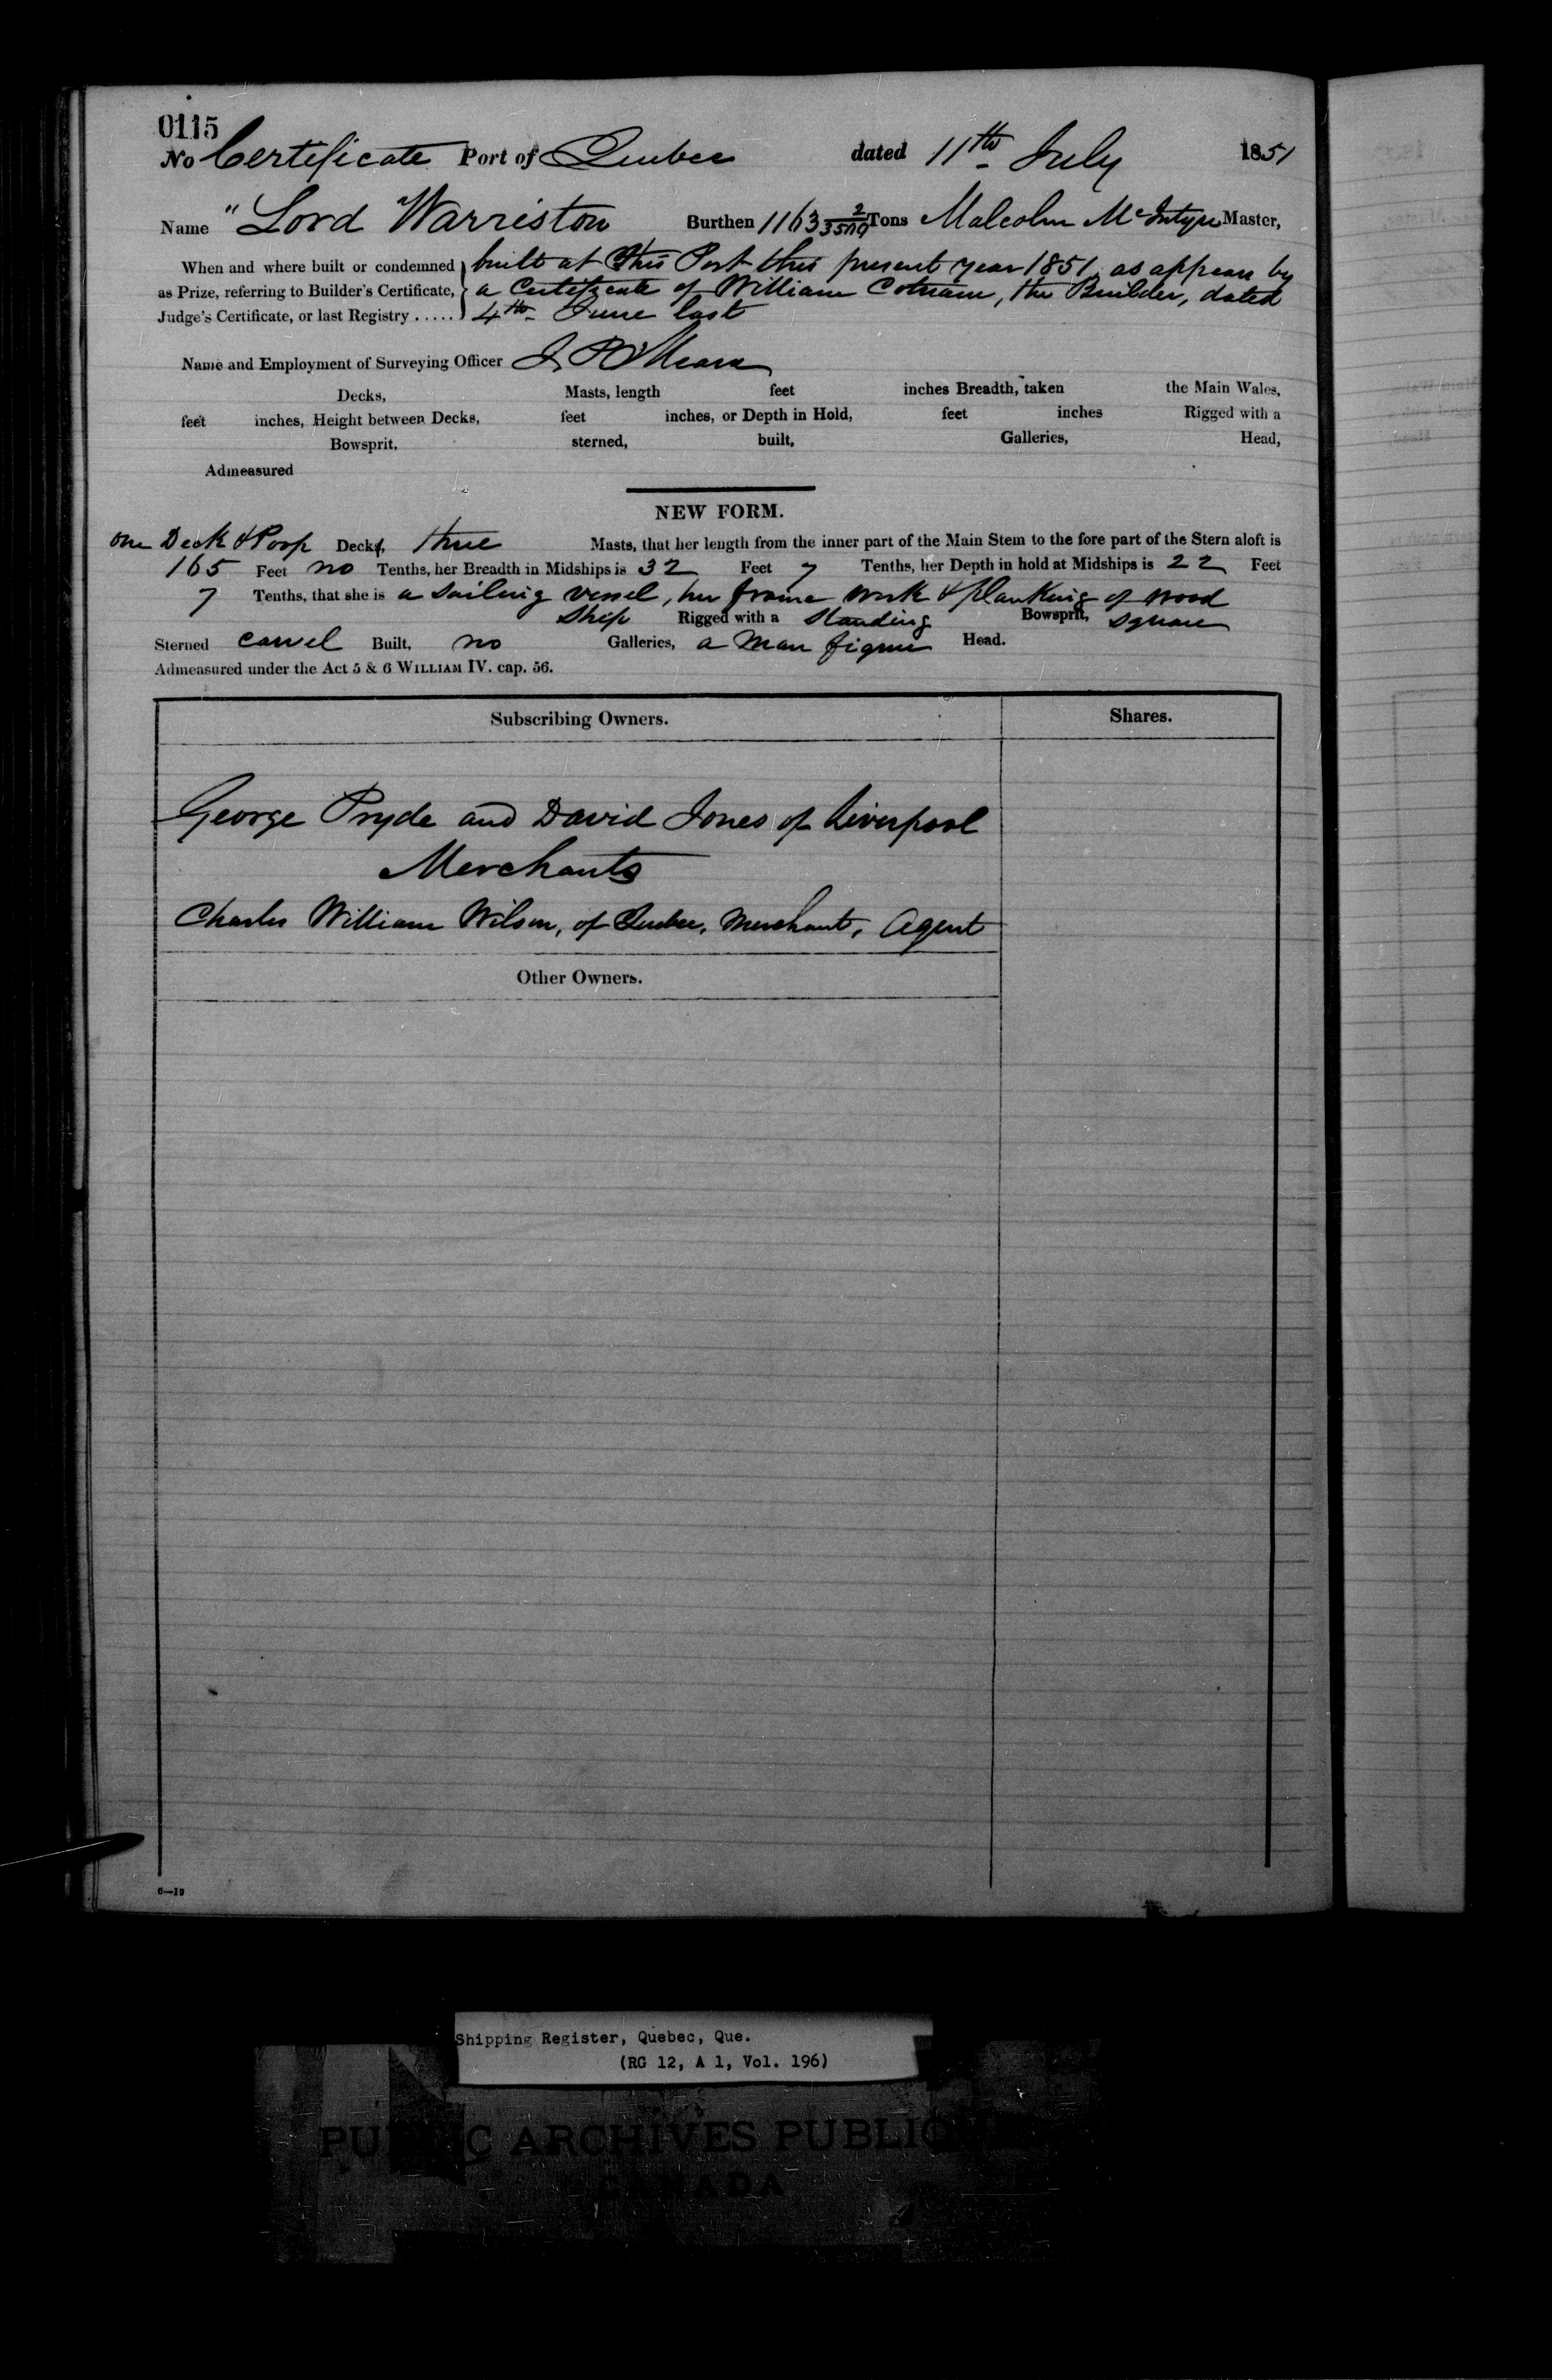 0115
No Certificate Port of Quebec dated 11th July 1851
Name "Lord Warriston Burthen 1163 2/3500 Tons Malcolm McIntyre Master,
When and where built or condemned built at this Port this present year 1851, as appears by
as Prize, referring to Builder's Certificate, a Certificate of William Cotnam, the Builder, dated
Judge's Certificate, or last Registry ..... 4th June last
Name and Employment of Surveying Officer J. R. O'Meara
Decks, Masts, length feet inches Breadth, taken the Main Wales,
feet inches, Height between Decks, feet inches, or Depth in Hold, feet inches Rigged with a
Bowsprit, sterned, built, Galleries, Head,
Admeasured
NEW FORM.
One Deck & Poop Decks, three Masts, that her length from the inner part of the Main Stem to the fore part of the Stern aloft is
165 Feet no Tenths, her Breadth in Midships is 32 Feet 7 Tenths, her Depth in hold at Midships is 22 Feet
7 Tenths, that she is a sailing vessel, her frame work & planking of wood
Ship Rigged with a Standing Bowsprit, square
Sterned carvel Built, no Galleries, a Man figure Head.
Admeasured under the Act 5 & 6 WILLIAM IV. cap. 56.
Subscribing Owners. Shares.
George Pryde and David Jones of Liverpool
Merchants
Charles William Wilson, of Quebec, Merchant, Agent
Other Owners.
6—19
Shipping Register, Quebec, Que.
(RG 12, A 1, Vol. 196)
PUBLIC ARCHIVES PUBLIQUES
CANADA